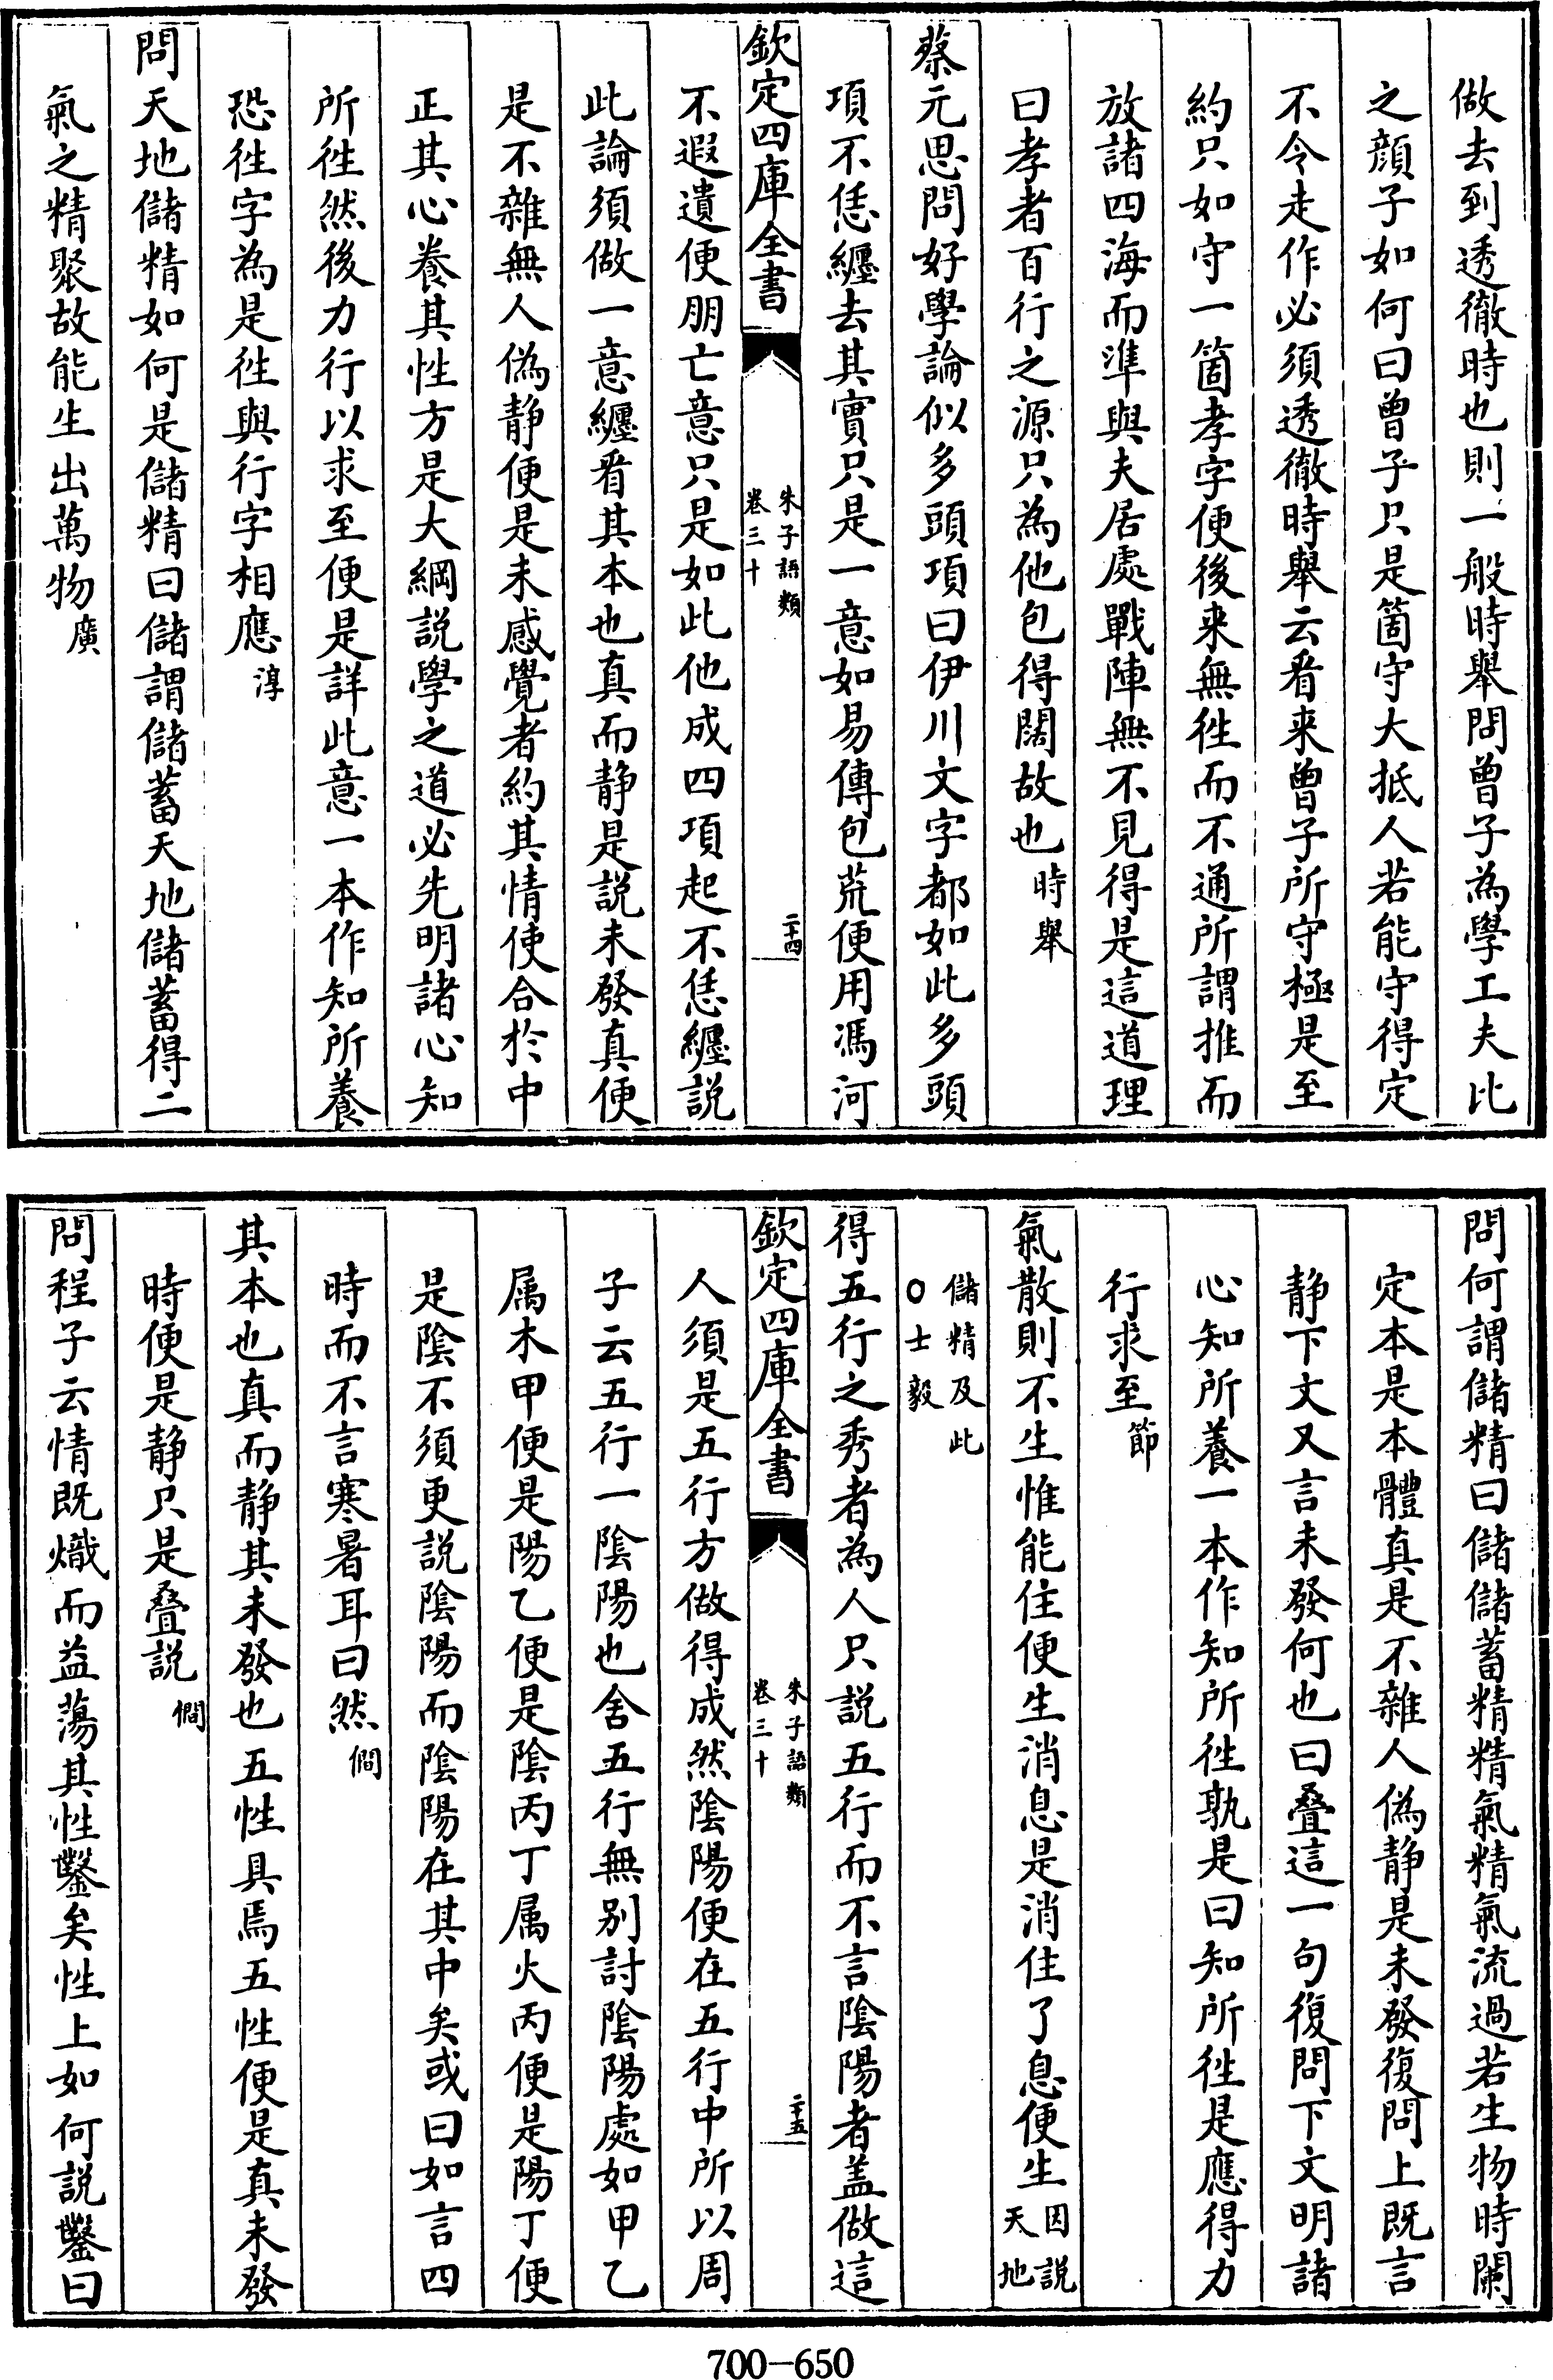 做去到透徹時也則一般時舉問曾子為學工夫比
之顔子如何曰曾子只是箇守大抵人若能守得定
不令走作必須透徹時舉云看来曾子所守極是至
約只如守一箇孝字便後来無徃而不通所謂推而
放諸四海而準與夫居處戰陣無不見得是這道理
曰孝者百行之源只為他包得闊故也時舉
蔡元思問好學論似多頭項曰伊川文字都如此多頭
項不恁纒去其實只是一意如易傳包荒便用馮河
欽定四庫全書
朱子語類
卷三十
二十四
不遐遺便朋亡意只是如此他成四項起不恁纒説
此論須做一意纒看其本也真而静是説未發真便
是不雜無人偽静便是未感覺者約其情使合於中
正其心養其性方是大綱説學之道必先明諸心知
所徃然後力行以求至便是詳此意一本作知所養
恐徃字為是徃與行字相應淳
問天地儲精如何是儲精曰儲謂儲蓄天地儲蓄得二
氣之精聚故能生出萬物廣
問何謂儲精曰儲儲蓄精精氣精氣流過若生物時闌
定本是本體真是不雜人偽静是未發復問上既言
静下文又言未發何也曰叠這一句復問下文明諸
心知所養一本作知所徃孰是曰知所徃是應得力
行求至節
氣散則不生惟能住便生消息是消住了息便生因説
天地
儲精及此
○士毅
得五行之秀者為人只説五行而不言隂陽者盖做這
欽定四庫全書
朱子語類
卷三十
二十五
人須是五行方做得成然隂陽便在五行中所以周
子云五行一隂陽也舍五行無别討隂陽處如甲乙
属木甲便是陽乙便是隂丙丁属火丙便是陽丁便
是隂不須更説隂陽而隂陽在其中矣或曰如言四
時而不言寒暑耳曰然僩
其本也真而静其未發也五性具焉五性便是真未發
時便是静只是叠説僩
問程子云情既熾而益蕩其性鑿矣性上如何説鑿曰
700-650